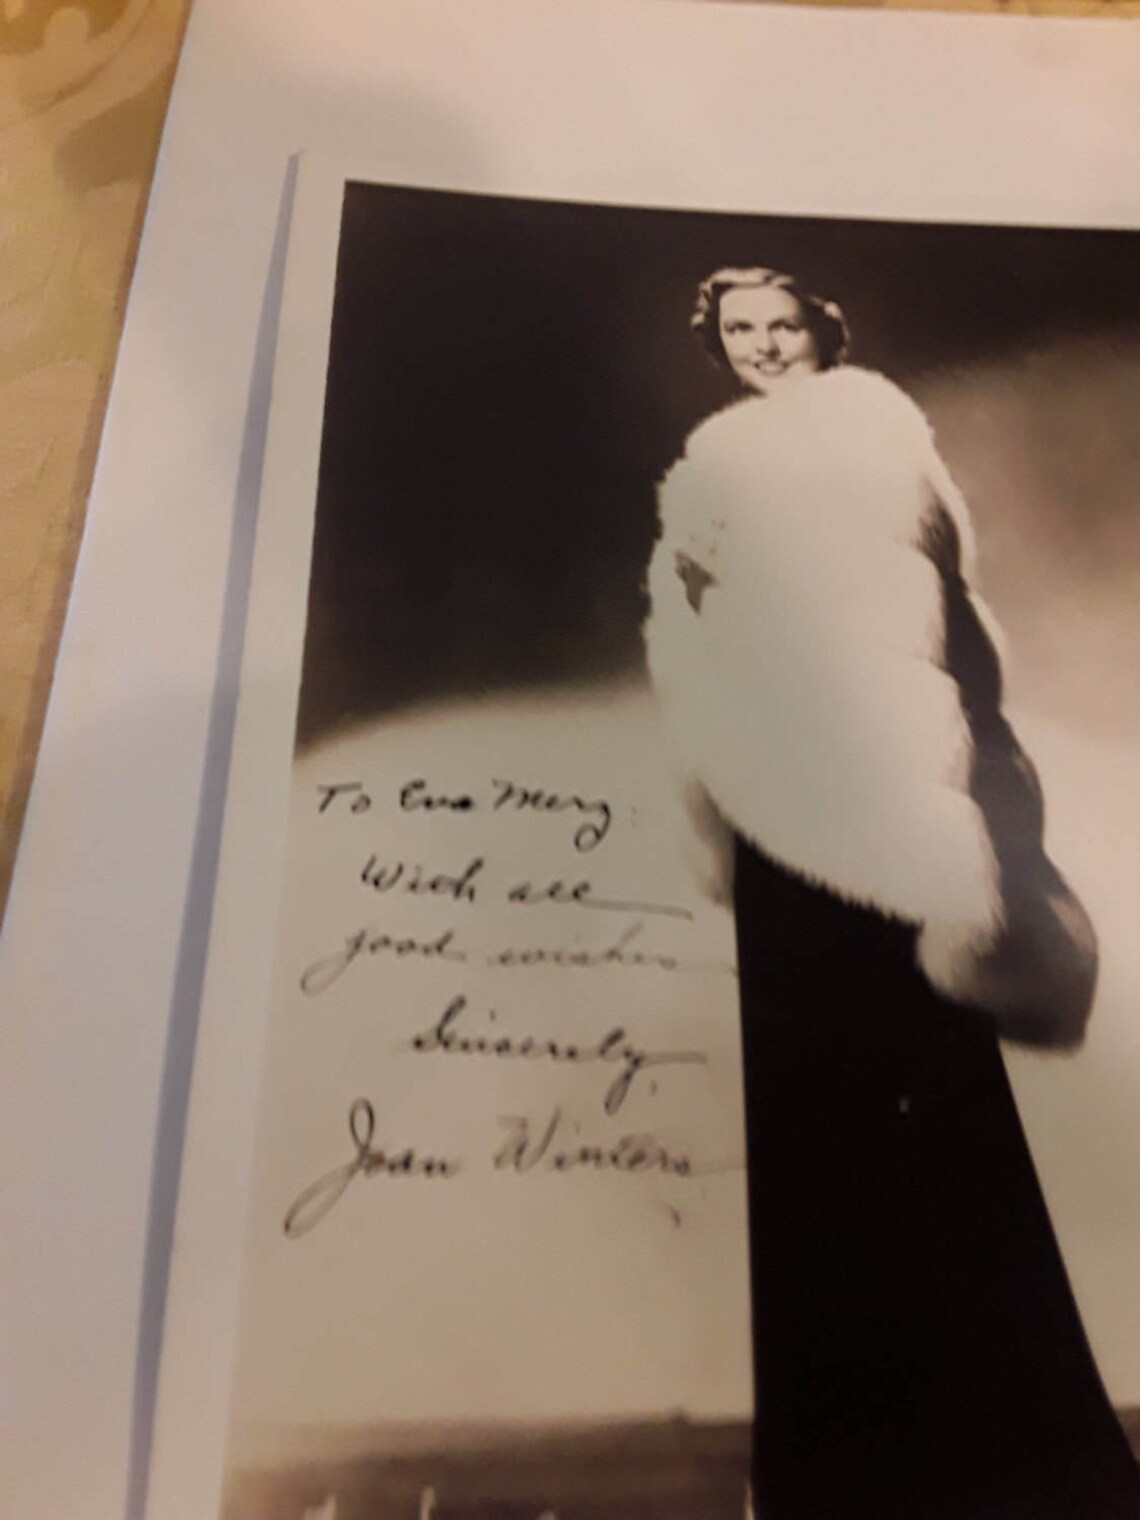 To Eva Merz:
With all
good wishes
Sincerely,
Joan Winters